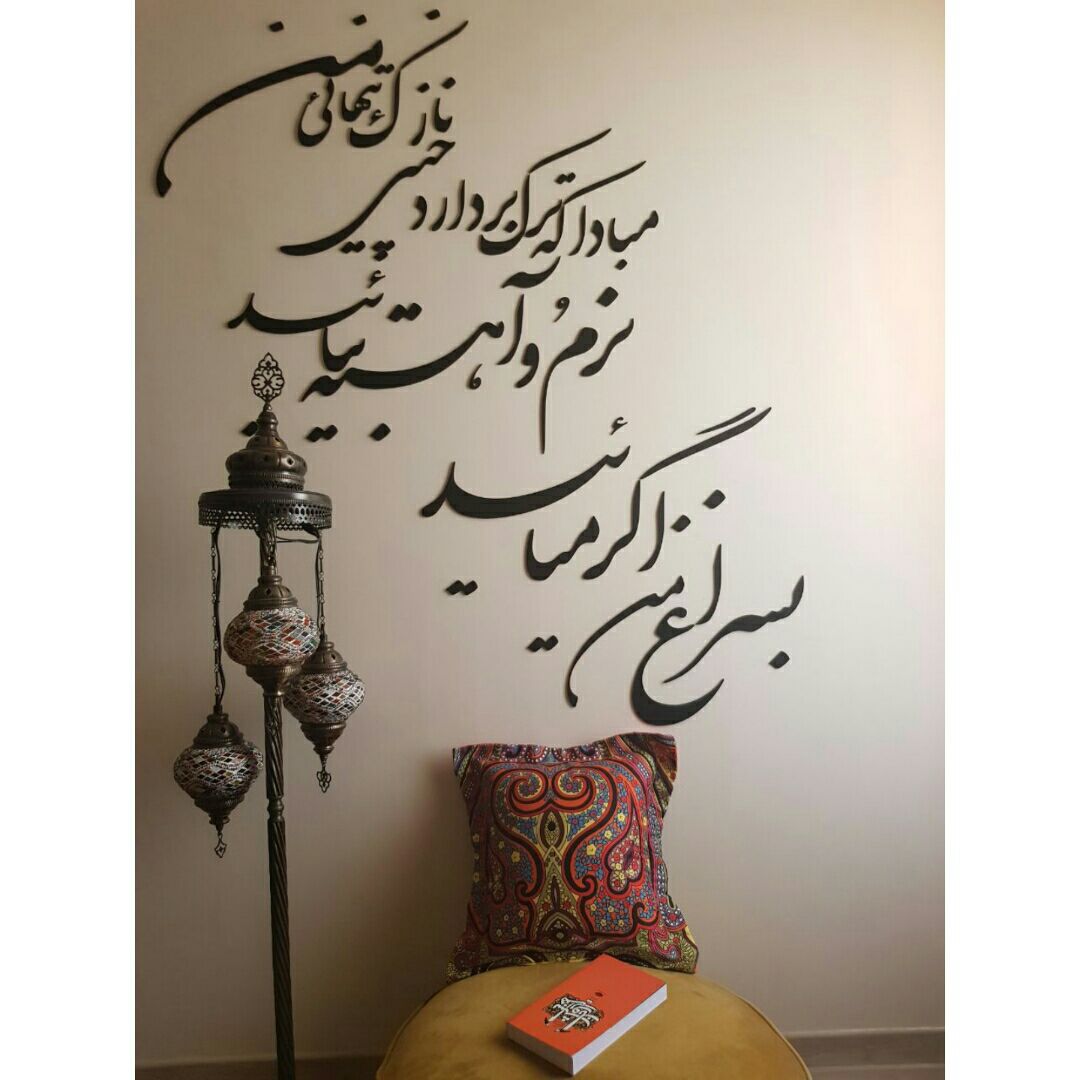 بسراغ من اگر میائید
نرم و آهسته بیائید
مبادا که ترک بردارد چینی
نازک تنهائی من